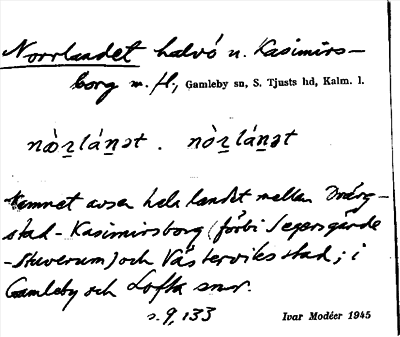 Norrlandet halvö n. Kasimirs-
borg m. fl., Gamleby sn, S. Tjusts hd, Kalm. l.
nòṟlánət . nòṟlánət
Namnet avser hela landet mellan Dverg-
stad - Kasimirsborg (förbi Segersgärde
- Stuverum) och Västerviks stad; i
Gamleby och Lofta snr.
s. 9, 133
Ivar Modéer 1945